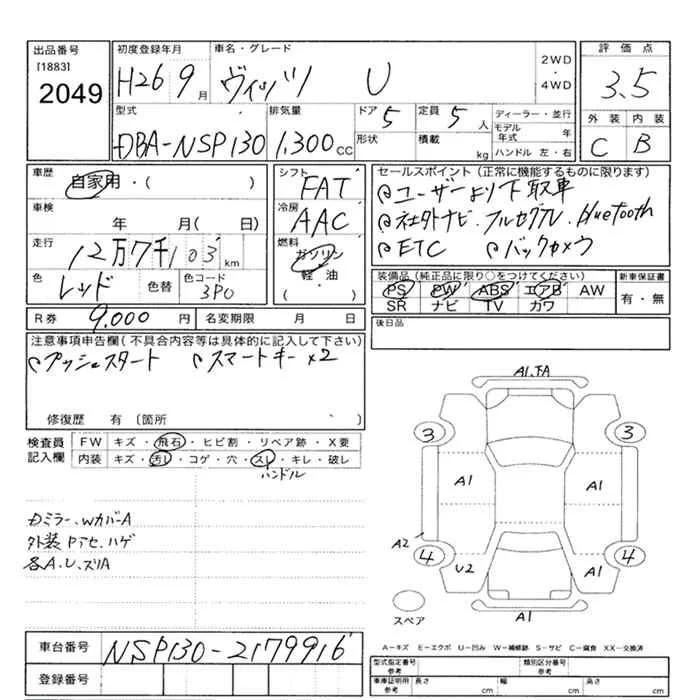 出品番号
[1883]
2049
初度登録年月
H26 9月
車名・グレード
ヴィッツ U
2WD
・
4WD
評価点
3.5
型式
DBA-NSP130
排気量
1,300cc
ドア
5
定員
5人
形状
積載
kg
ディーラー・並行
モデル年式 年
ハンドル 左・右
外装 内装
C B
車歴
自家用・( )
車検
年 月( 日)
走行
12万7千103km
色
レッド
色替
色コード
3P0
シフト
FAT
冷房
AAC
燃料
ガソリン
軽・油
( ・ )
セールスポイント(正常に機能するものに限ります)
ユーザーより下取車
社外ナビ.フルセグTV.bluetooth
ETC バックカメラ
装備品(純正品に限り○をつけてください)
PS PW ABS エアB AW
SR ナビ TV カワ
新車保証書
有・無
R券 9.000円
名変期限 月 日
後日品
注意事項申告欄(不具合内容等は具体的に記入して下さい)
プッシュスタート スマートキー×2
修復歴 有〔箇所 〕
検査員記入欄
FW キズ・飛石・ヒビ割・リペア跡・X要
内装 キズ・汚レ・コゲ・穴・スレ・キレ・破レ
ハンドル
Dミラー.Wカバ-A
外装Pアセ.ハゲ
各A.U.ズリA
A1.FA
3 3
A1 A1
A2
4 4
U2 A1
A1
スペア
A-キズ E-エクボ U-凹み W-補修跡 S-サビ C-腐食 XX-交換済
車台番号 NSP130-2179916
登録番号
型式指定番号 参考
類別区分番号 参考
車庫証明用 参考
長さ cm
幅 cm
高さ cm